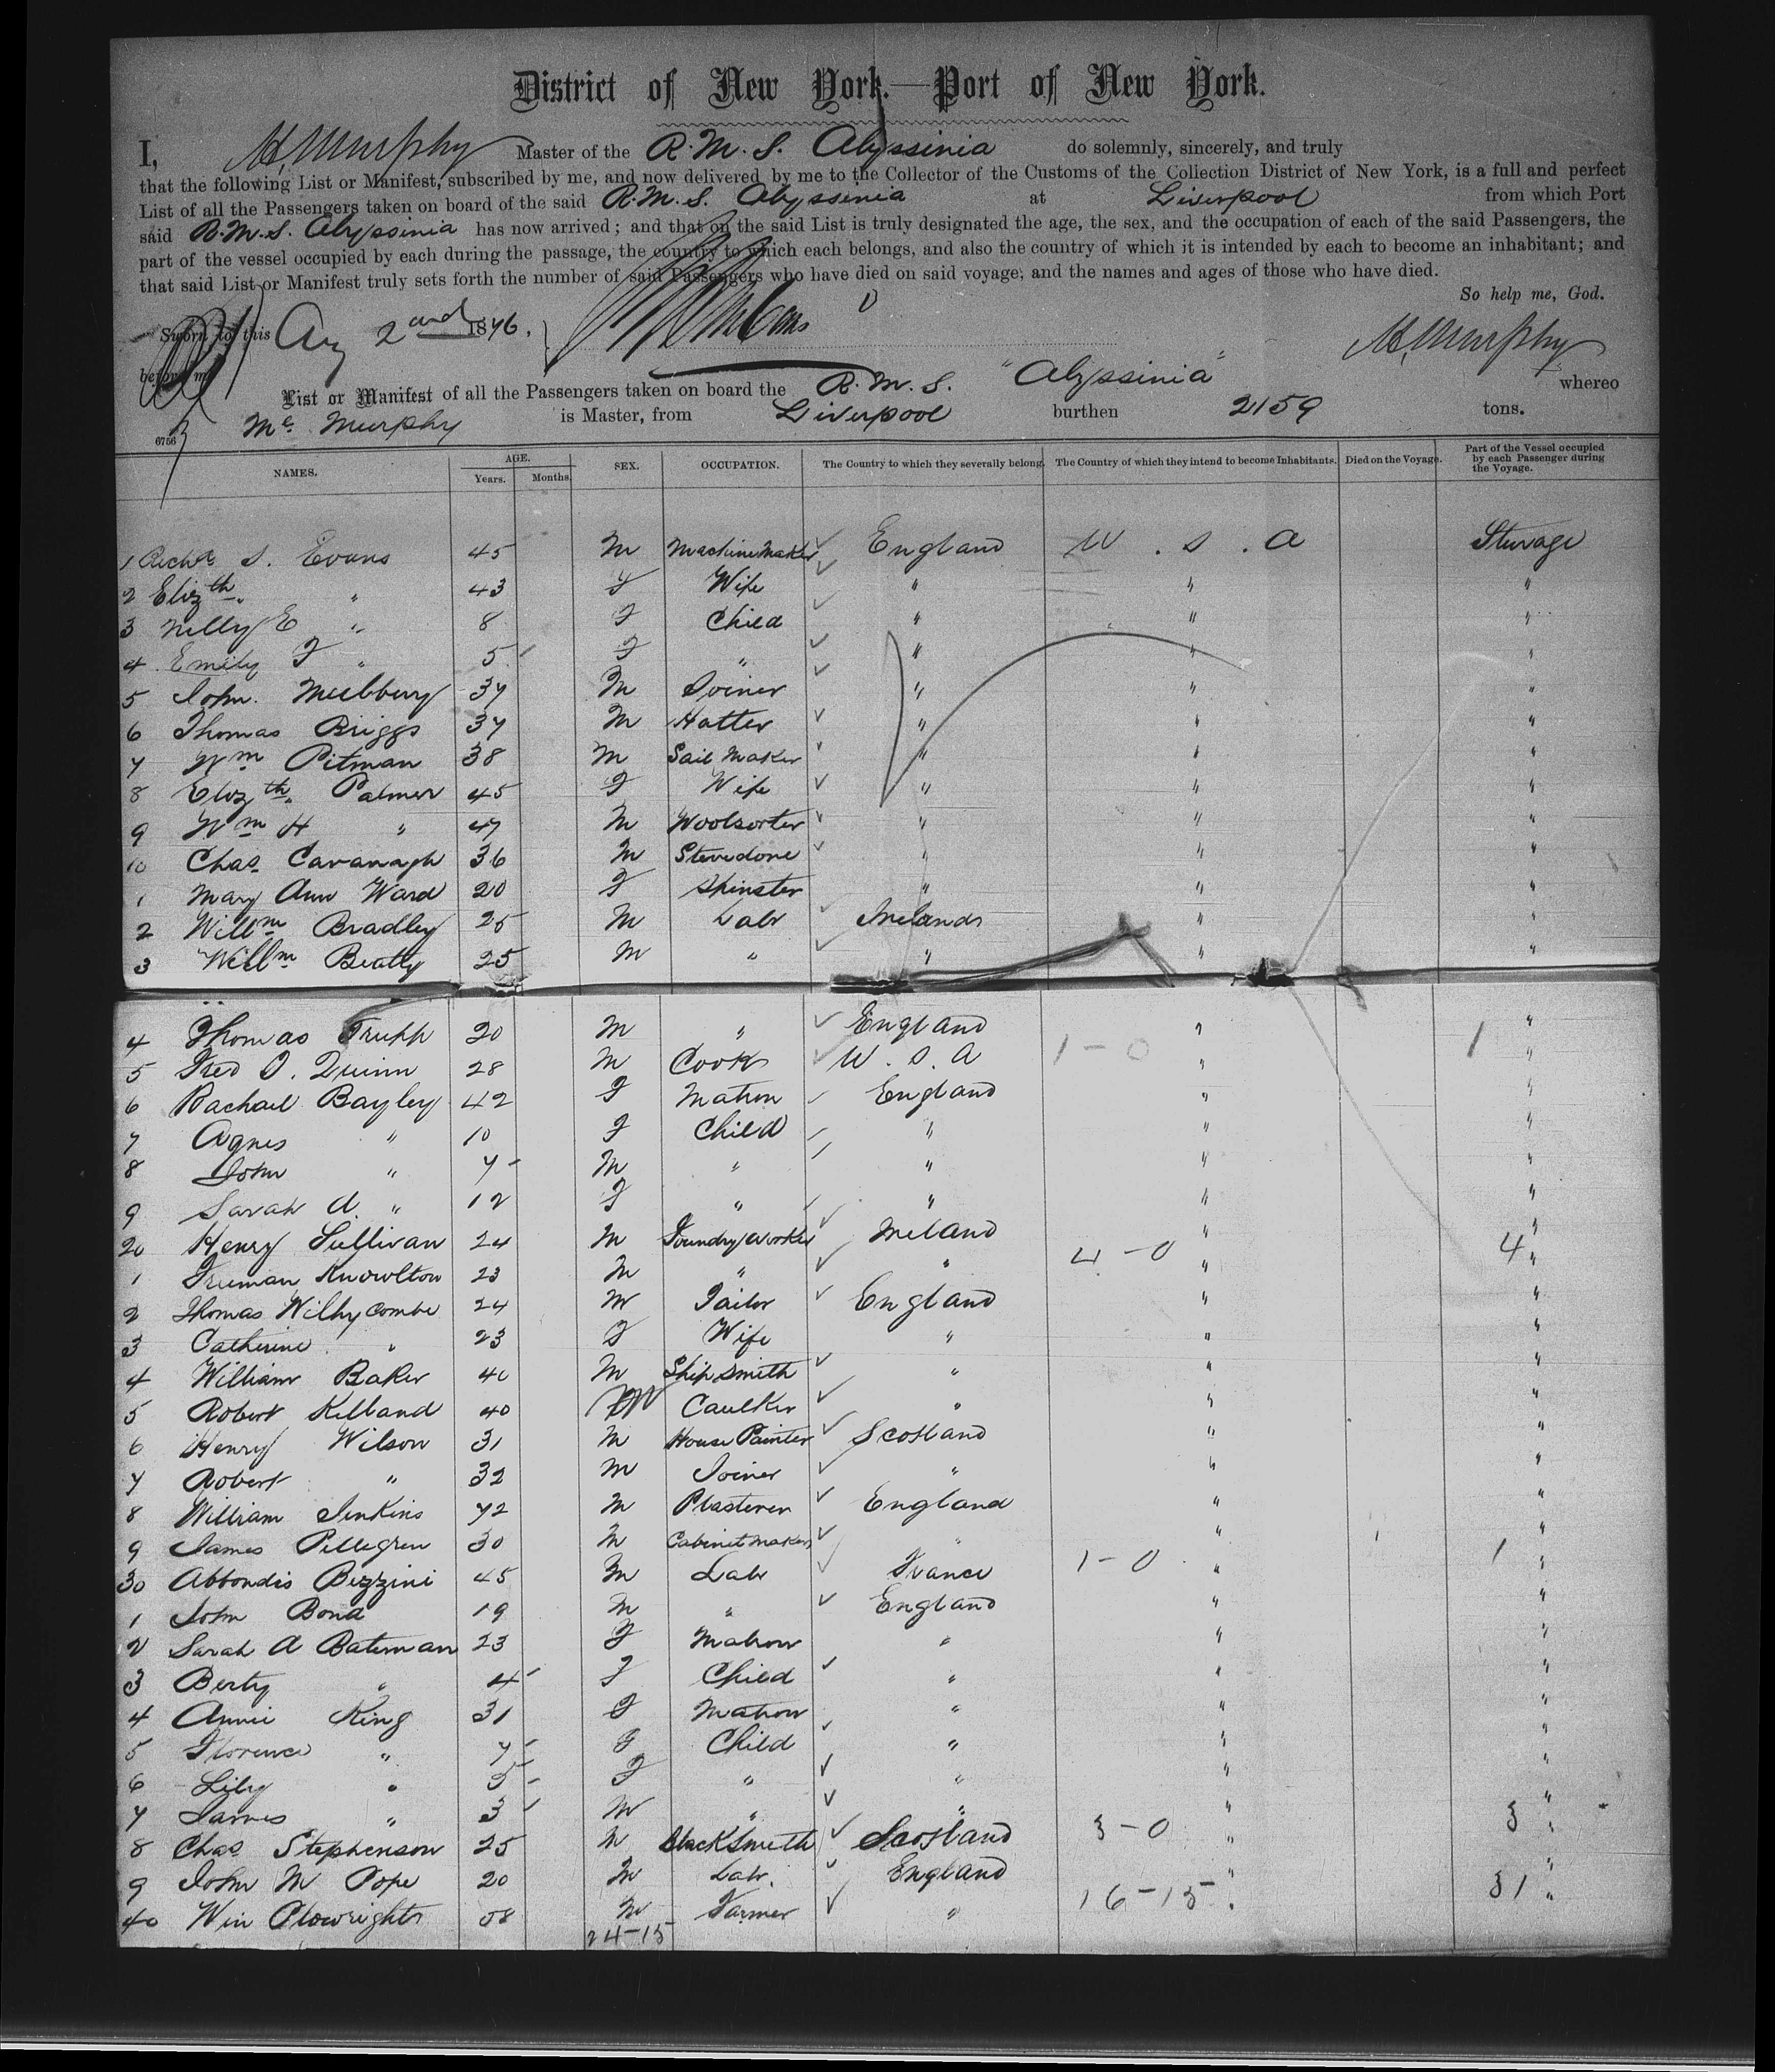 District of New York.—Port of New York.
I, M. Murphy Master of the R.M.S. Abyssinia do solemnly, sincerely, and truly
that the following List or Manifest, subscribed by me, and now delivered by me to the Collector of the Customs of the Collection District of New York, is a full and perfect
List of all the Passengers taken on board of the said R.M.S. Abyssinia at Liverpool from which Port
said R.M.S. Abyssinia has now arrived; and that on the said List is truly designated the age, the sex, and the occupation of each of the said Passengers, the
part of the vessel occupied by each during the passage, the country to which each belongs, and also the country of which it is intended by each to become an inhabitant; and
that said List or Manifest truly sets forth the number of said Passengers who have died on said voyage, and the names and ages of those who have died.
So help me, God.
Sworn to this Aug 2nd 1876. M. Murphy
before me
List or Manifest of all the Passengers taken on board the R.M.S. "Abyssinia" whereo
Mc Murphy is Master, from Liverpool burthen 2159 tons.
6756
NAMES. AGE. Years. Months. SEX. OCCUPATION. The Country to which they severally belong. The Country of which they intend to become Inhabitants. Died on the Voyage. Part of the Vessel occupied by each Passenger during the Voyage.
1 Richd S. Evans 45 M Machine Maker England U.S.A Sterage
2 Elizth " 43 F Wife " " "
3 Nelly E " 8 F Child " " "
4 Emily F " 5 F " " " "
5 John. 37 M Joiner " " "
6 Thomas Briggs 37 M Hatter " " "
7 Wm Pitman 38 M Sail Maker " " "
8 Elizth Palmer 45 F Wife " " "
9 Wm H " 47 M Woolsorter " " "
10 Chas Cavanagh 36 M Stevedore " " "
1 Mary Ann Ward 20 F Spinster " " "
2 Willm Bradley 25 M Labr Ireland " "
3 Willm Beatty 25 M " " " "
4 Thomas Trupp 20 M " England " "
5 Fred J. Quinn 28 M Cook U.S.A 1-0 " 1 "
6 Rachael Bayley 42 F Matron England " "
7 Agnes " 10 F Child " " "
8 John " 7 M " " " "
9 Sarah A. " 12 F " " " "
20 Henry Sullivan 24 M Foundry Worker Ireland " "
1 Freeman Knowlton 23 M " " 4-0 " 4 "
2 Thomas Withycombe 24 M Tailor England " "
3 Catherine " 23 F Wife " " "
4 William Baker 40 M Shipsmith " " "
5 Robert Kelland 40 M Caulker " " "
6 Henry Wilson 31 M House Painter Scotland " "
7 Robert " 32 M Joiner " " "
8 William Jenkins 72 M Plasterer England " "
9 James Pellegren 30 M Cabinet Maker " " "
30 Abbondis Bezzini 45 M Labr France 1-0 " 1 "
1 John Bond 19 M " England " "
2 Sarah A Bateman 23 F Matron " " "
3 Berty " 4 F Child " " "
4 Annie King 31 F Matron " " "
5 Florence " 7 F Child " " "
6 Lily " 5 F " " " "
7 James " 3 M " " " "
8 Chas Stephenson 25 M BlackSmith Scotland 3-0 " 3 "
9 John M Pope 20 M Labr. England " "
40 Wm Plowrights 58 M Farmer " 16-15 " 31 "
24-15